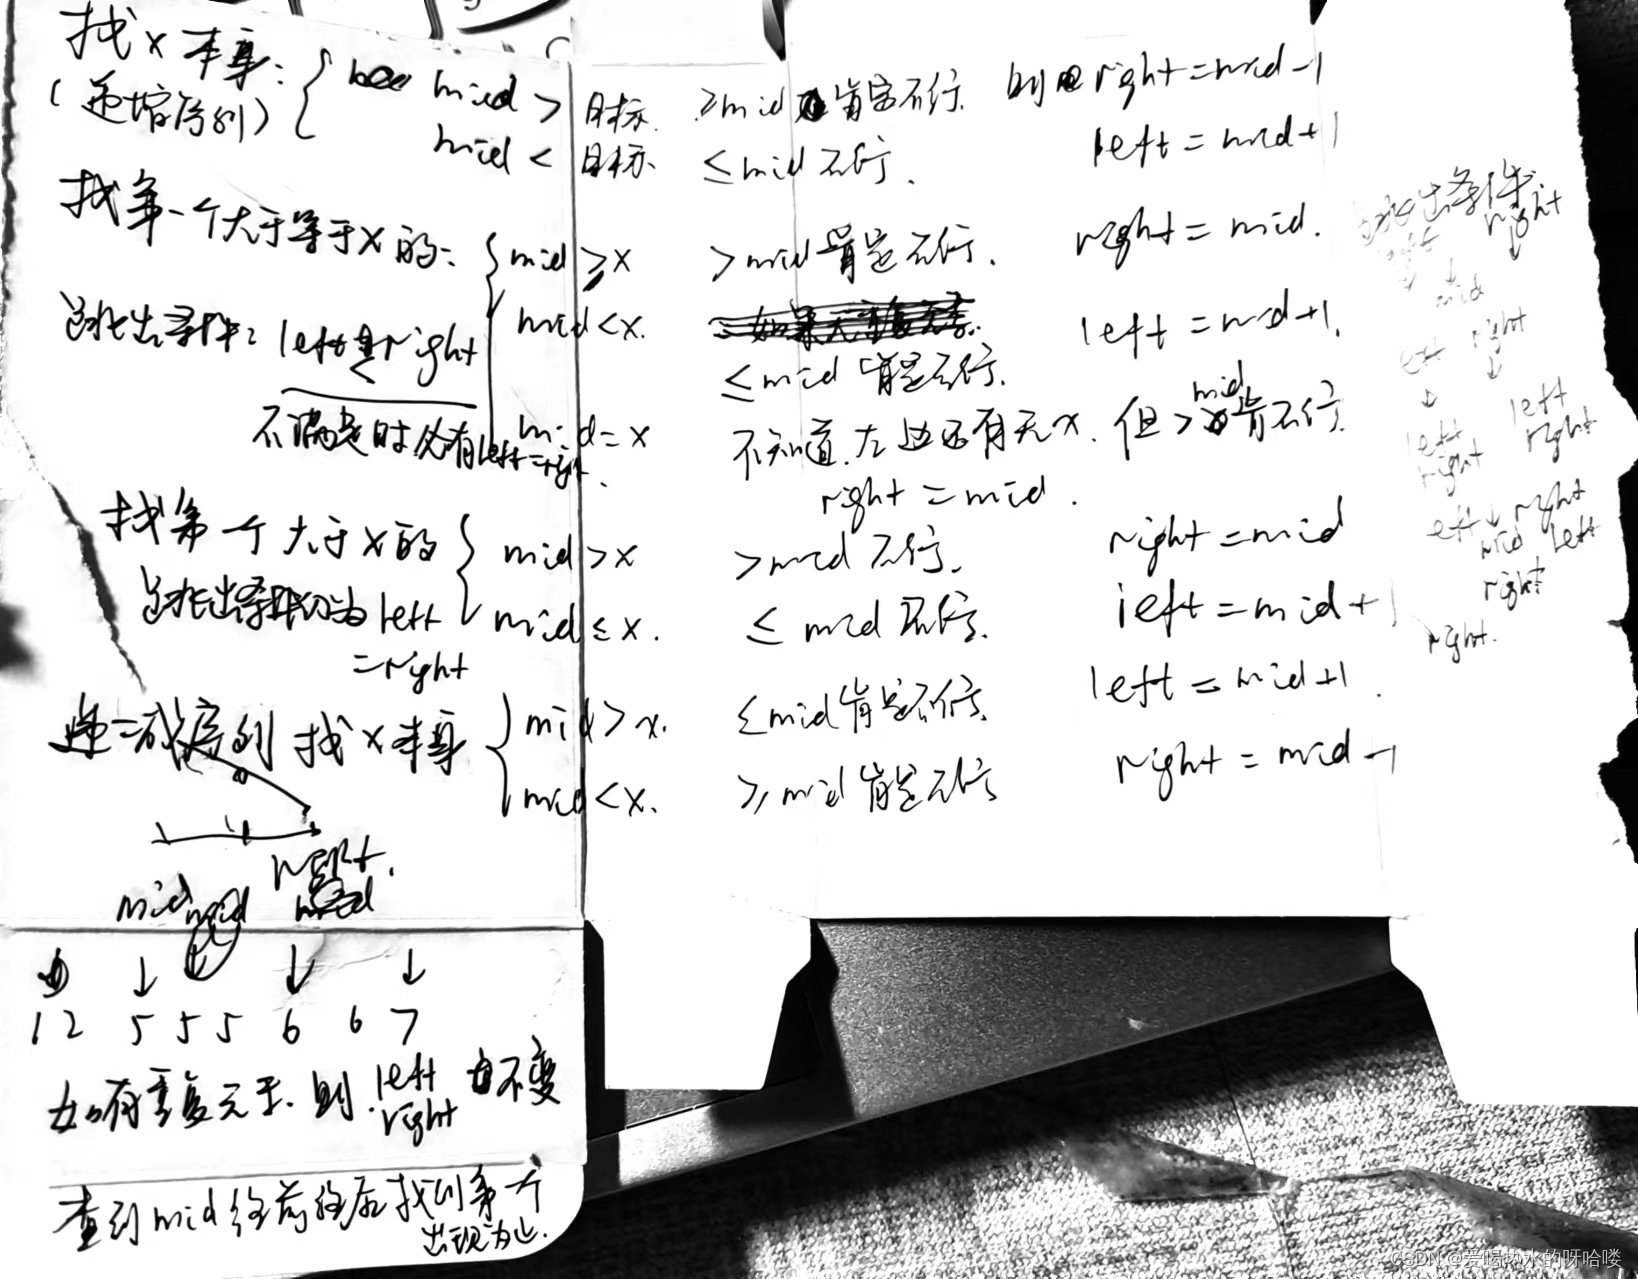 找x本身: { mid > 目标. >mid 肯定不行. 则 right=mid-1
(递增序列) mid < 目标. ≤mid 不行. left=mid+1
找第一个大于等于x的: { mid ≥ x >mid 肯定不行. right = mid.
mid < x. left = mid+1.
跳出条件: left < right ≤mid 肯定不行.
不满足时必有left=right. mid = x 不知道左边还有无x. 但 >mid 肯不行.
right = mid.
找第一个大于x的 { mid > x >mid 不行. right = mid
跳出条件仍为 left = right mid ≤ x. ≤ mid 不行. left = mid+1
递减序列 找x本身 { mid > x. ≤mid 肯定不行. left = mid+1.
mid < x. ≥mid 肯定不行 right = mid-1
right
mid mid
1 2 5 5 5 6 6 7
如有重复元素. 则 left right 不变
查到mid往前往后找到第一个
出现为止.
跳出条件
right
mid
right
left left
right right
right
mid left
right
right.
CSDN @爱喝热水的呀哈喽